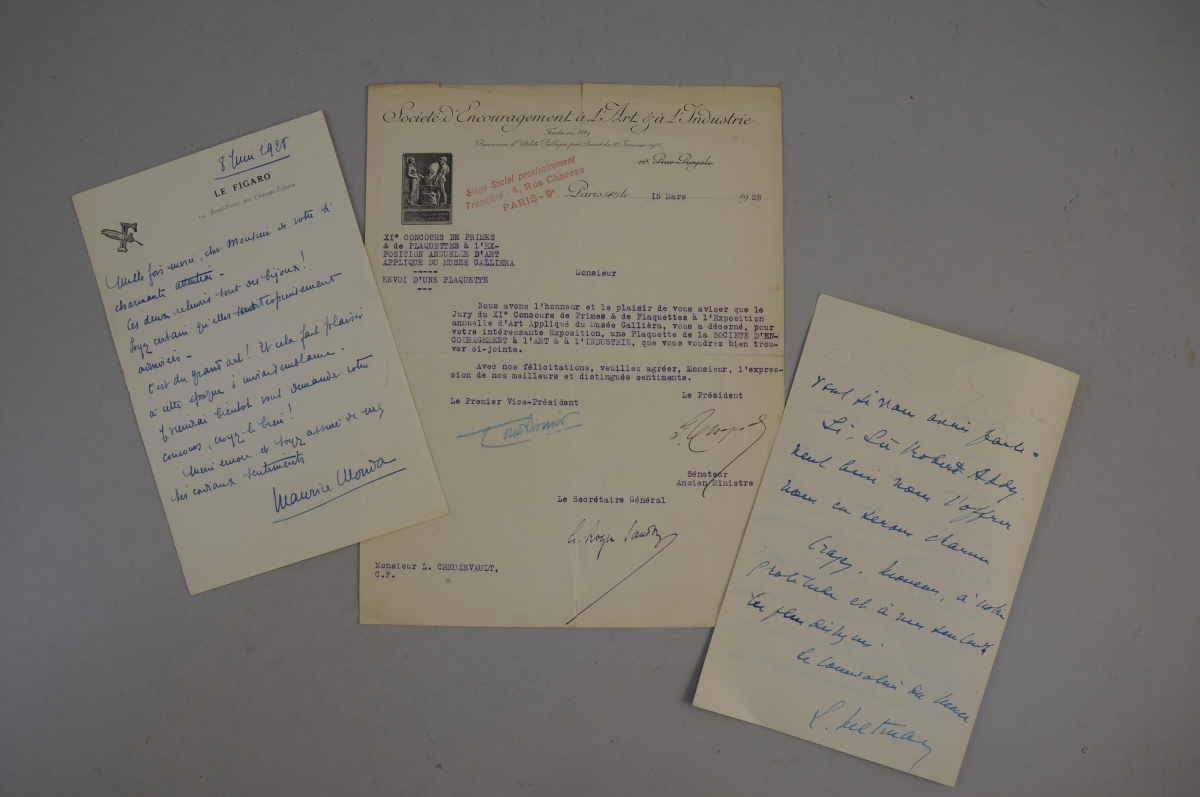 8 Juin 1928
LE FIGARO
14, Rond-Point des Champs-Elysées
F
Mille fois merci, cher Monsieur de votre si
charmante attention.
Ces deux reliures sont des bijoux!
Soyez certain qu'elles seront copieusement
admirées.
C'est du grand art! Et cela fait plaisir
à cette époque d'invraisemblance.
Je viendrai bientôt vous demander votre
concours, croyez-le bien!
Merci encore et soyez assuré de mes
très cordiaux sentiments
Maurice Monda
Société d'Encouragement à L'Art & à L'Industrie
Fondée en 1889
Reconnue d'Utilité Publique par Décret du 21 Janvier
10, Rue Royale
Siège Social provisoirement
Transféré : 4, Rue Charras
PARIS-9e
Paris (8e) le 15 Mars 1928
XI° CONCOURS DE PRIMES
& de PLAQUETTES à l'EX-
POSITION ANNUELLE D'ART
APPLIQUE DU MUSEE GALLIERA
-----
ENVOI D'UNE PLAQUETTE
---
Monsieur
Nous avons l'honneur et le plaisir de vous aviser que le
Jury du XI° Concours de Primes & de Plaquettes à l'Exposition
annuelle d'Art Appliqué du Musée Gallièra, vous a décerné, pour
votre intéressante Exposition, une Plaquette de la SOCIETE D'EN-
COURAGEMENT à l'ART & à l'INDUSTRIE, que vous voudrez bien trou-
ver ci-jointe.
Avec nos félicitations, veuillez agréer, Monsieur, l'expres-
sion de nos meilleurs et distingués sentiments.
Le Premier Vice-Président
Le Président
Sénateur
Ancien Ministre
Le Secrétaire Général
G. Roger Sandoz
Monsieur L. CREUZEVAULT,
C.P.
Robert
bien nous l'offrir
nous en serons
Croyez, Monsieur, à notre
gratitude et à mes sentiments
les plus distingués
Le Conservateur du Musée
L. Metman